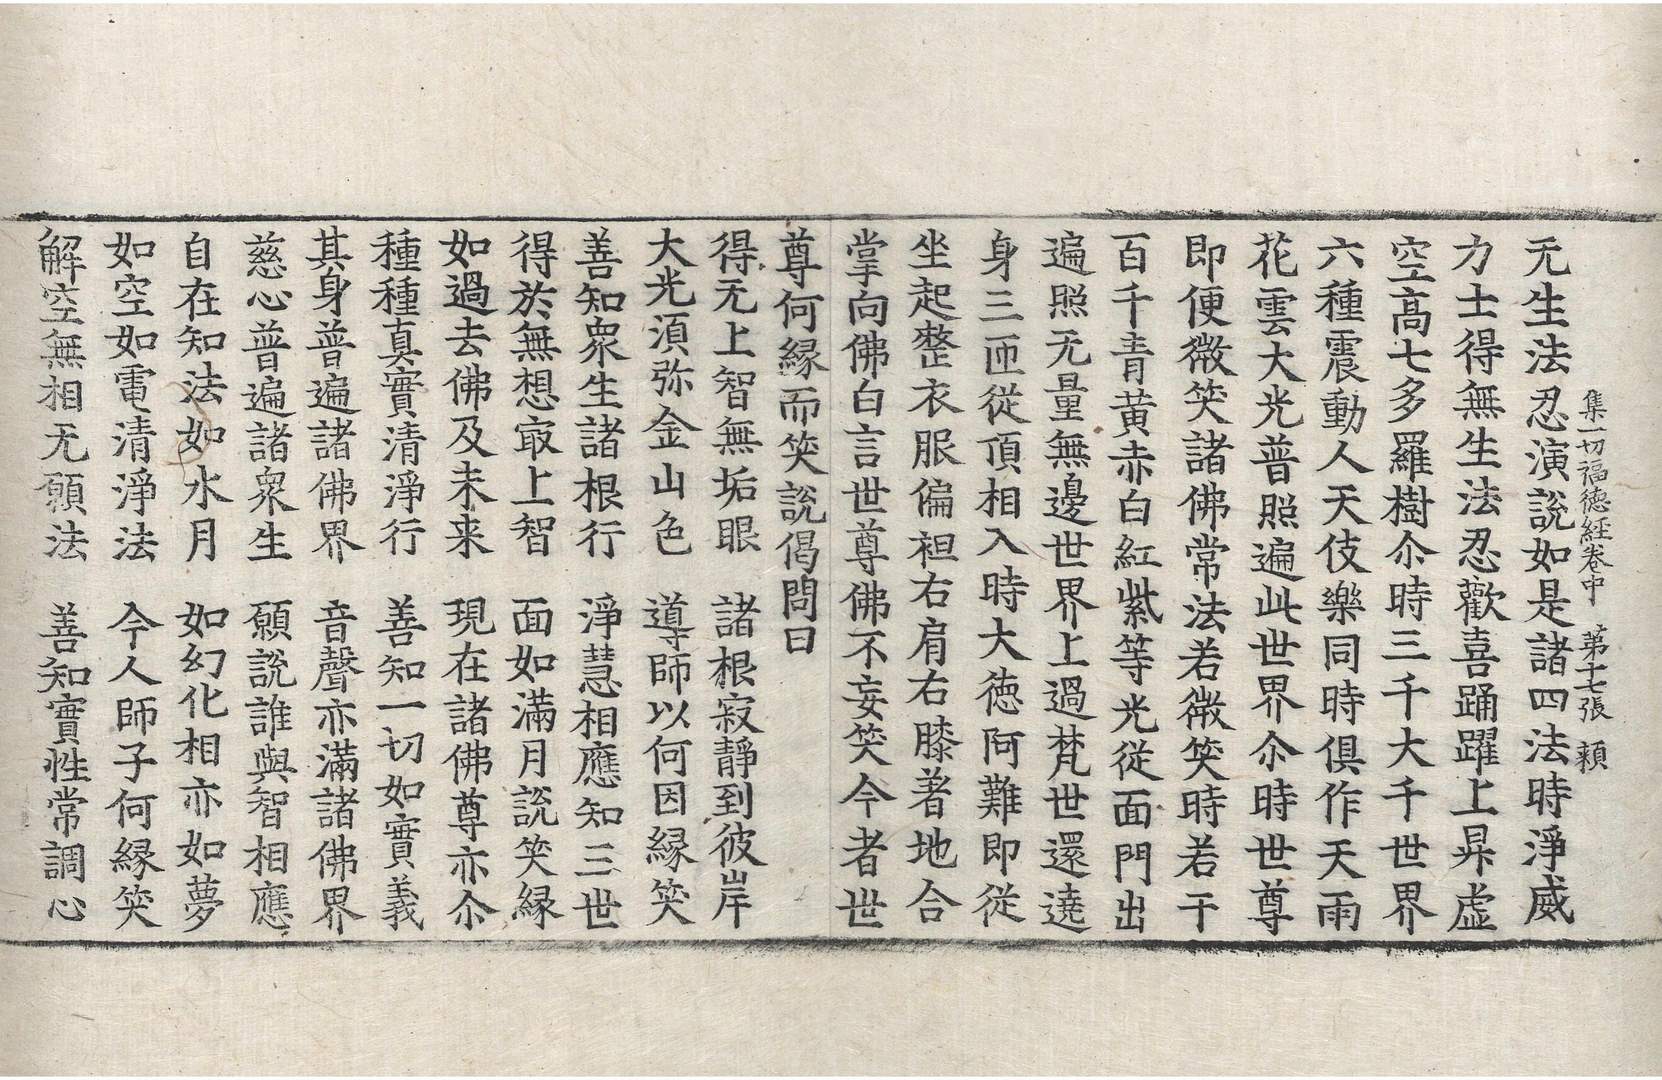 集一切福德経卷中 第十七張 頼
无生法忍演說如是諸四法時淨威
力士得無生法忍歡喜踊躍上昇虛
空高七多羅樹尒時三千大千世界
六種震動人天伎樂同時俱作天雨
花雲大光普照遍此世界尒時世尊
即便微笑諸佛常法若微笑時若干
百千青黃赤白紅紫等光従面門出
遍照无量無邊世界上過梵世還遶
身三匝従頂相入時大徳阿難即従
坐起整衣服偏袒右肩右膝著地合
掌向佛白言世尊佛不妄笑今者世
尊何縁而笑說偈問曰
得无上智無垢眼 諸根寂靜到彼岸
大光湏弥金山色 導師以何因縁笑
善知衆生諸根行 淨慧相應知三世
得於無想㝡上智 面如滿月說笑縁
如過去佛及未来 現在諸佛尊亦尒
種種真實清淨行 善知一切如實義
其身普遍諸佛界 音聲亦滿諸佛界
慈心普遍諸衆生 願說誰與智相應
自在知法如水月 如幻化相亦如夢
如空如電清淨法 今人師子何縁笑
解空無相无願法 善知實性常調心